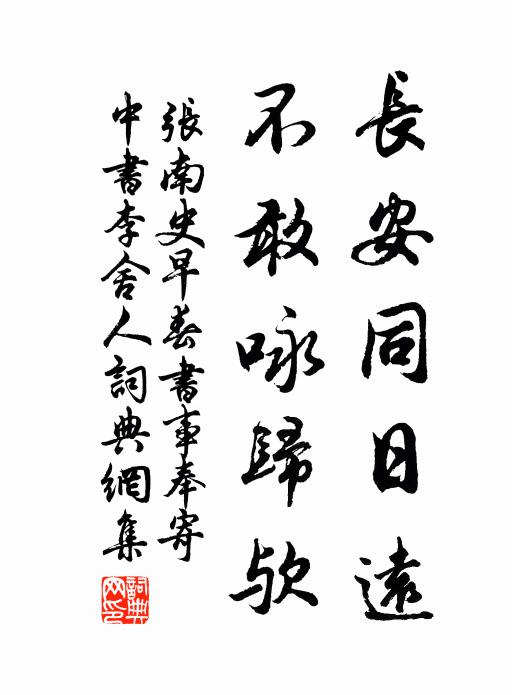 長安同日遠
不敢咏歸欤
張南史早春書事奉寄
中書李舍人詞典網集
詞典
网印